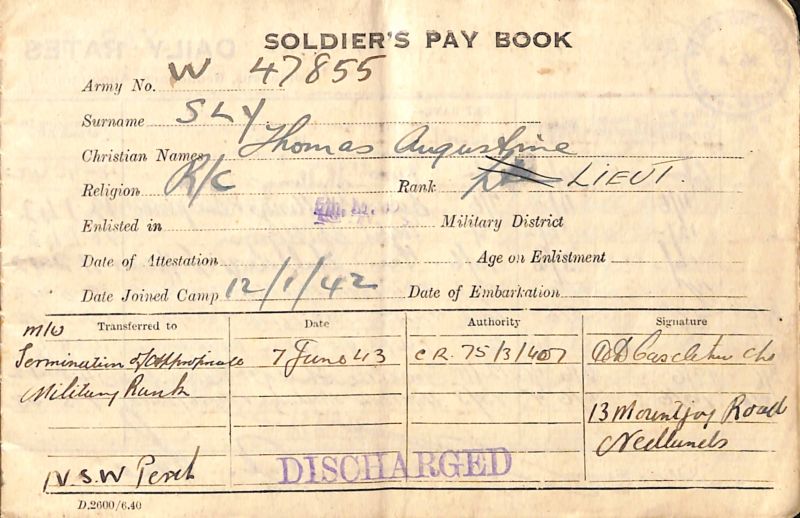 SOLDIER'S PAY BOOK
Army No. W 47855
Surname SLY
Christian Names Thomas Augustine
Religion R/C Rank LIEUT.
Enlisted in Military District
Date of Attestation Age on Enlistment
Date Joined Camp 12/1/42 Date of Embarkation
Transferred to Date Authority Signature
Termination of Appropriate 7 June 43 C R. 75/3/407
Military Rank
13 Mountjoy Road
Nedlands
N.S.W Perth DISCHARGED
D.2600/6.40